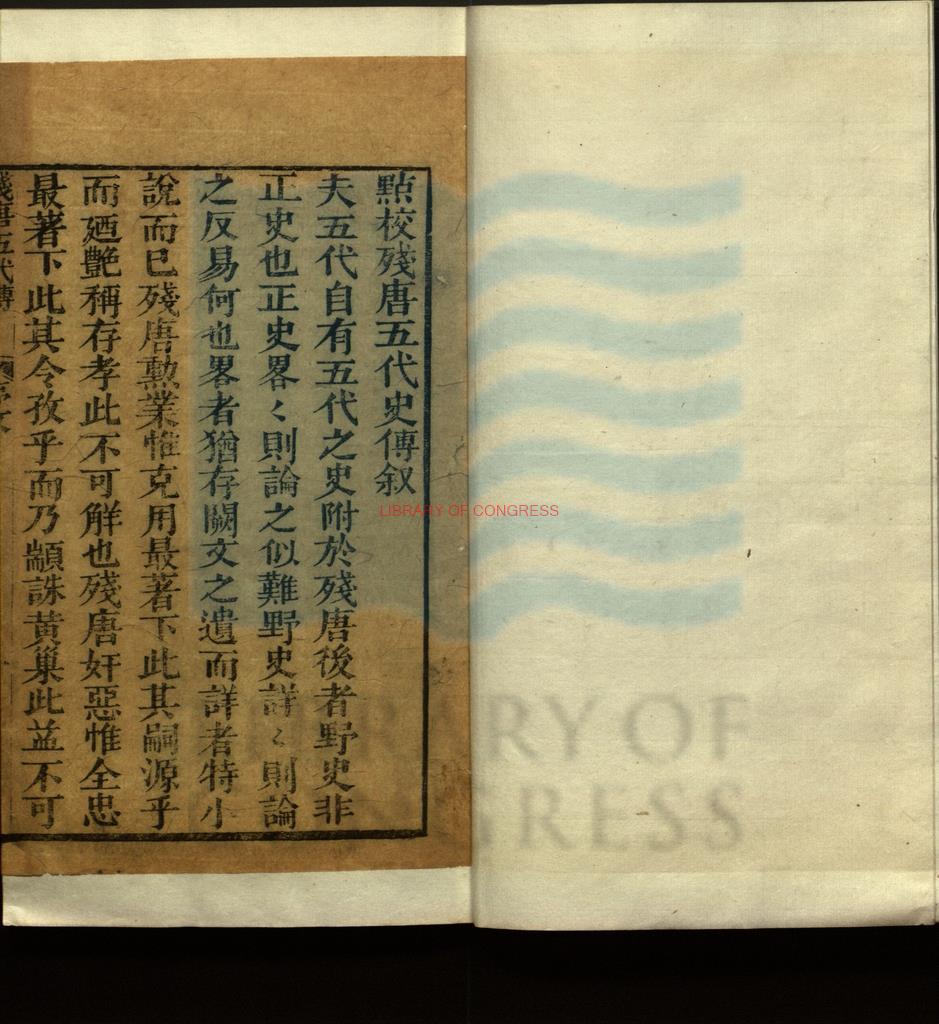 點校殘唐五代史傳叙
夫五代自有五代之史附於殘唐後者野史非
正史也正史畧〻則論之似難野史詳〻則論
之反易何也畧者猶存闕文之遺而詳者特小
說而已殘唐勲業惟克用最著下此其嗣源乎
而廼艷稱存孝此不可解也殘唐奸惡惟全忠
最著下此其令孜乎而乃顓誅黄巢此益不可
殘唐五代傳
LIBRARY OF CONGRESS
LIBRARY OF
CONGRESS